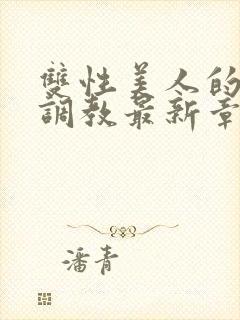 雙性美人的
調教最新章
潘青